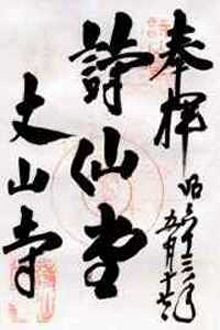 奉拝
昭六十三年
五月十七日
詩仙堂
丈山寺